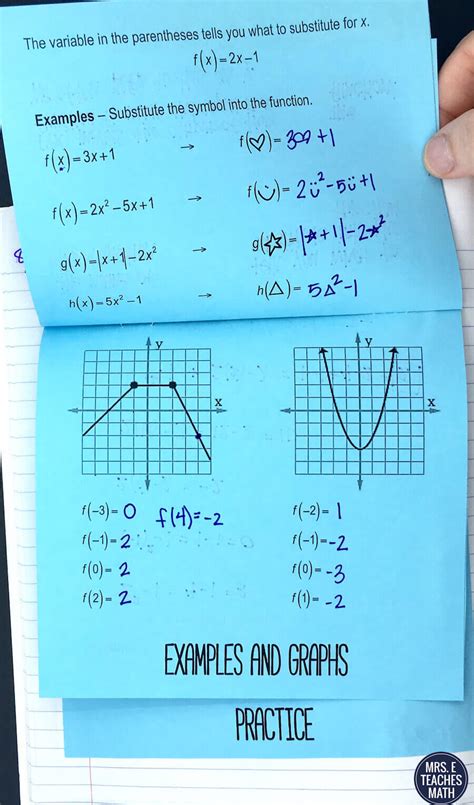 The variable in the parentheses tells you what to substitute for x.
f(x)=2x-1
Examples – Substitute the symbol into the function.
f(x)=3x+1 → f(♡)= 3♡+1
f(x)=2x²-5x+1 → f(ツ)= 2ツ²-5ツ+1
g(x)=|x+1|-2x² → g(☆)=|☆+1|-2☆²
h(x)=5x²-1 → h(△)= 5△²-1
y y
x x
f(-3)= 0 f(4)=-2 f(-2)= 1
f(-1)= 2 f(-1)= -2
f(0)= 2 f(0)= -3
f(2)= 2 f(1)= -2
EXAMPLES AND GRAPHS
PRACTICE
MRS. E
TEACHES
MATH